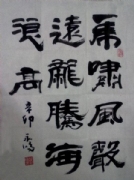 虎嘯風聲
遠龍騰海
浪高
辛卯